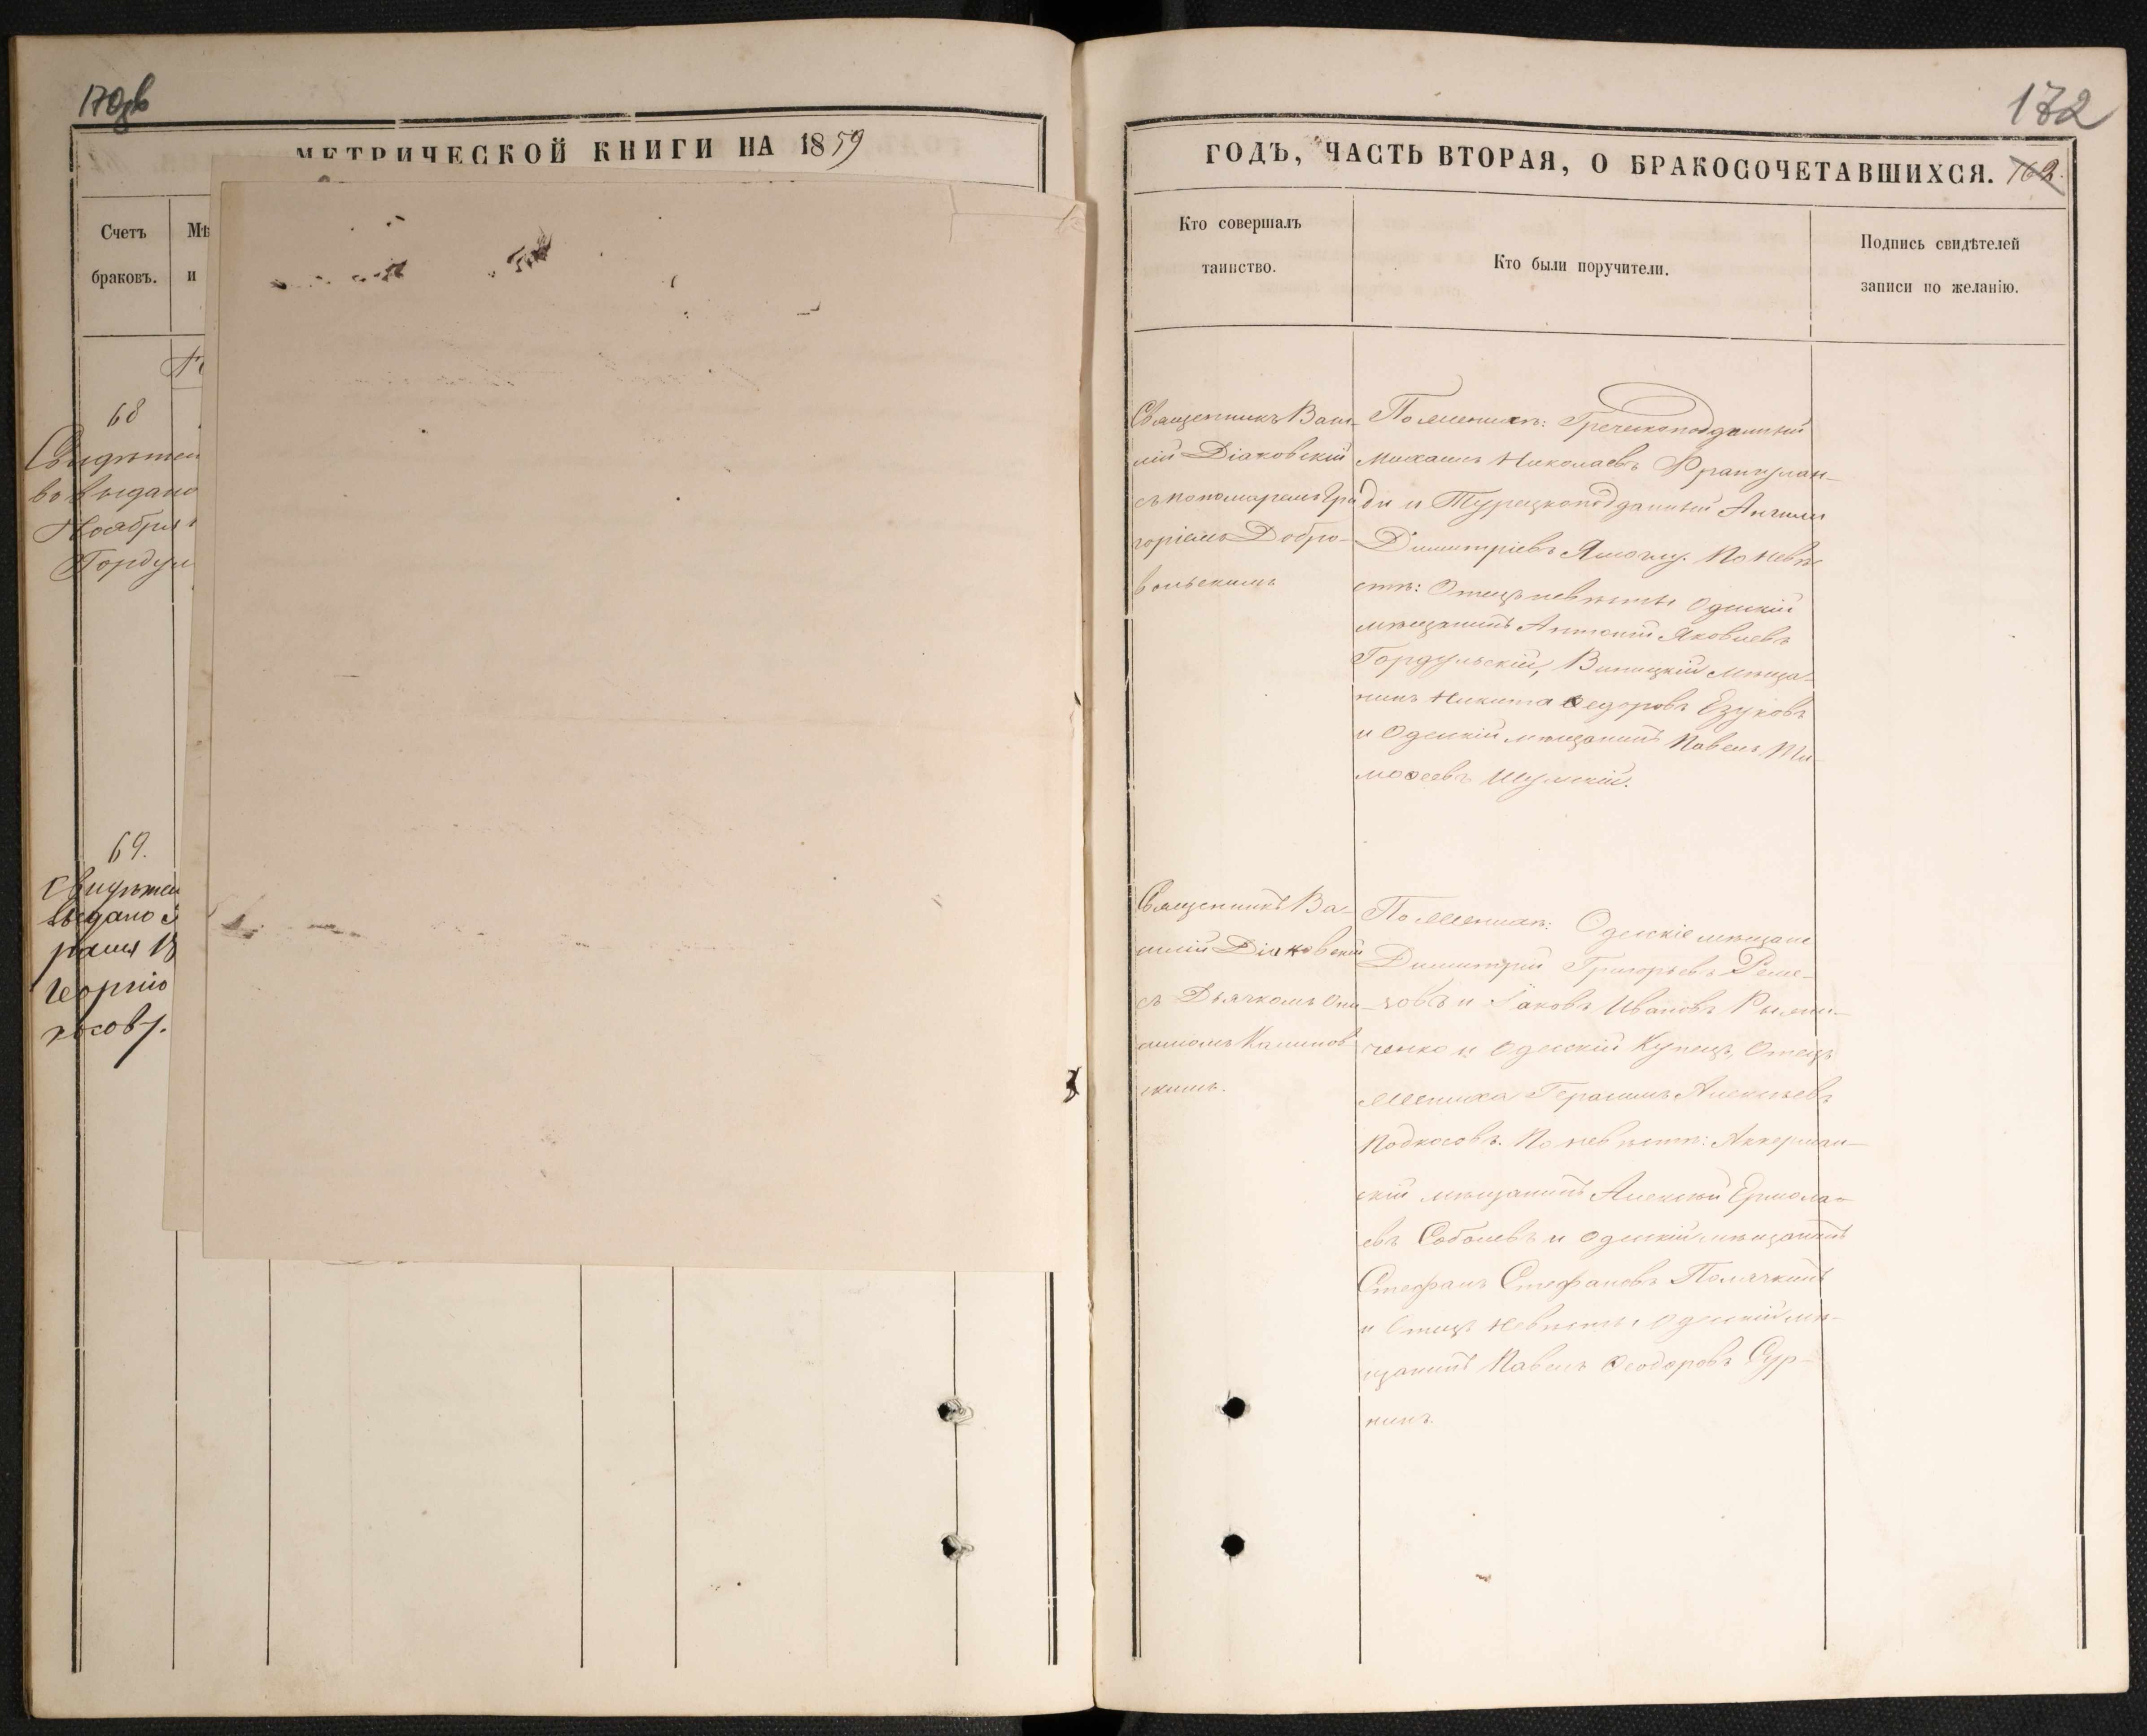 170об
МЕТРИЧЕСКОЙ КНИГИ НА 1859
Счетъ
браковъ.
Мѣ
и
68
Свидѣтел
во выдано
Ноября
Гордул
69.
Свидѣтел
выдано
раля 18
Георгію
косову.
172
ГОДЪ, ЧАСТЬ ВТОРАЯ, О БРАКОСОЧЕТАВШИХСЯ. 162.
Кто совершалъ
таинство.
Кто были поручители.
Подпись свидѣтелей
записи по желанію.
Священникъ Васи-
лій Діаковскій
съ пономаремъ Гри
горіемъ Добро-
вольскимъ
По женихѣ: Греческоподданный
Михаилъ Николаевъ
ди и Турецкоподданный
Димитріевъ По невѣ
стѣ: Отецъ невѣсты Одесскій
мѣщанинъ Антоній Яковлевъ
Гордульскій, Винницкій мѣща-
нинъ Никита Ѳедоровъ Езуковъ
и Одесскій мѣщанинъ Павелъ Ти-
моѳеевъ Шумскій.
Священникъ Ва-
силій Діаковскій
съ Дьячкомъ Они-
симомъ Калинов
скимъ.
По женихѣ: Одесскіе мѣщане
Димитрій Григорьевъ Реме-
зовъ и Іаковъ Ивановъ
ченко и Одесскій Купецъ, Отецъ
жениха Герасимъ Алексѣевъ
Подкосовъ. По невѣстѣ: Аккерман-
скій мѣщанинъ Алексѣй Ермола-
евъ Соболевъ и Одесскій мѣщанинъ
Стефанъ Стефановъ
и Отецъ невѣсты Одесскій мѣ-
щанинъ Павелъ Ѳеодоровъ Сур-
нинъ.